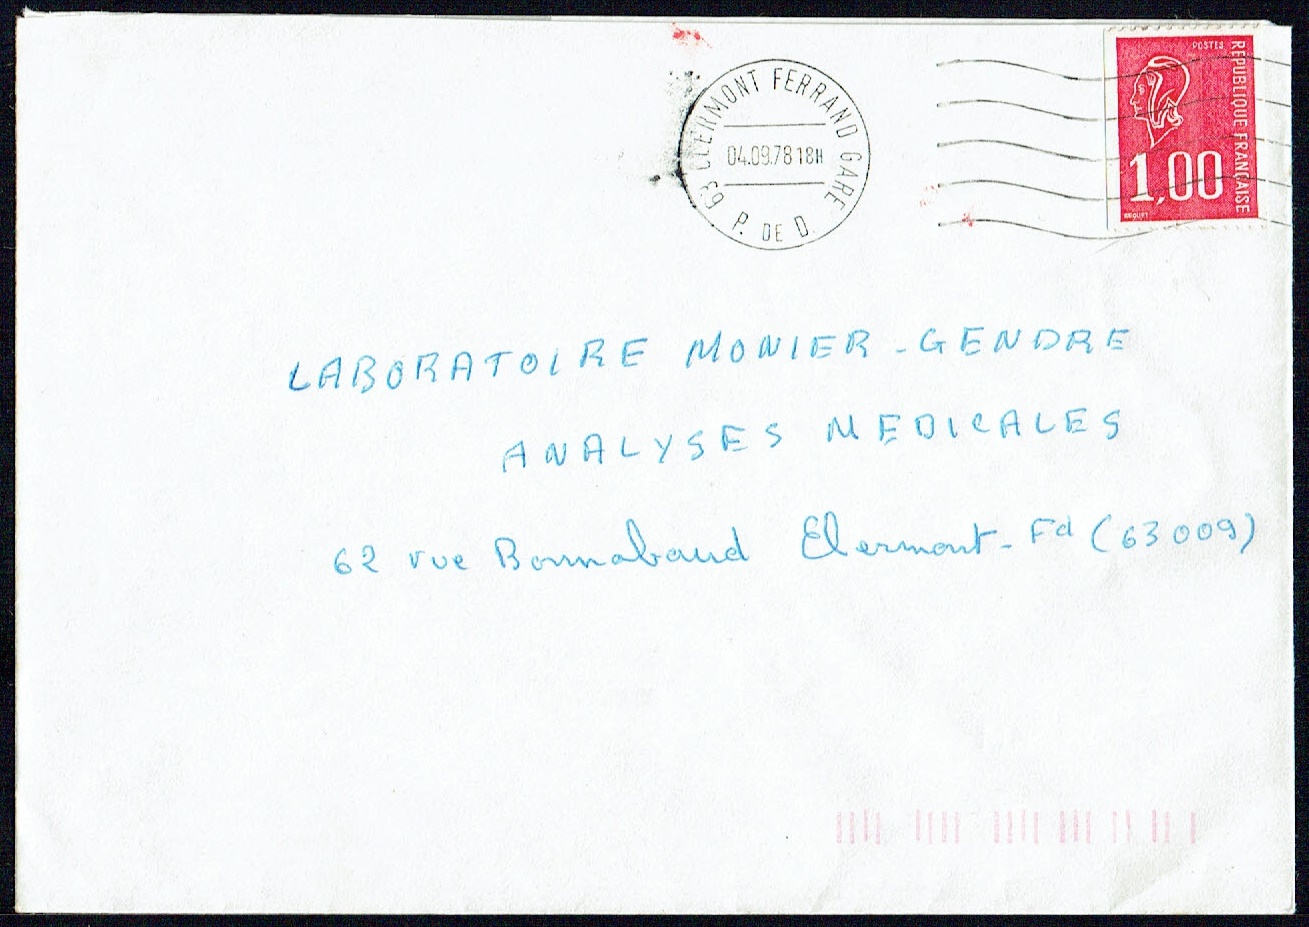 63 CLERMONT FERRAND GARE
04.09.78 18H
P. DE D.
POSTES
REPUBLIQUE FRANÇAISE
1,00
BEQUET
LABORATOIRE MONIER-GENDRE
ANALYSES MEDICALES
62 rue Bonnabaud Clermont-Fd (63009)